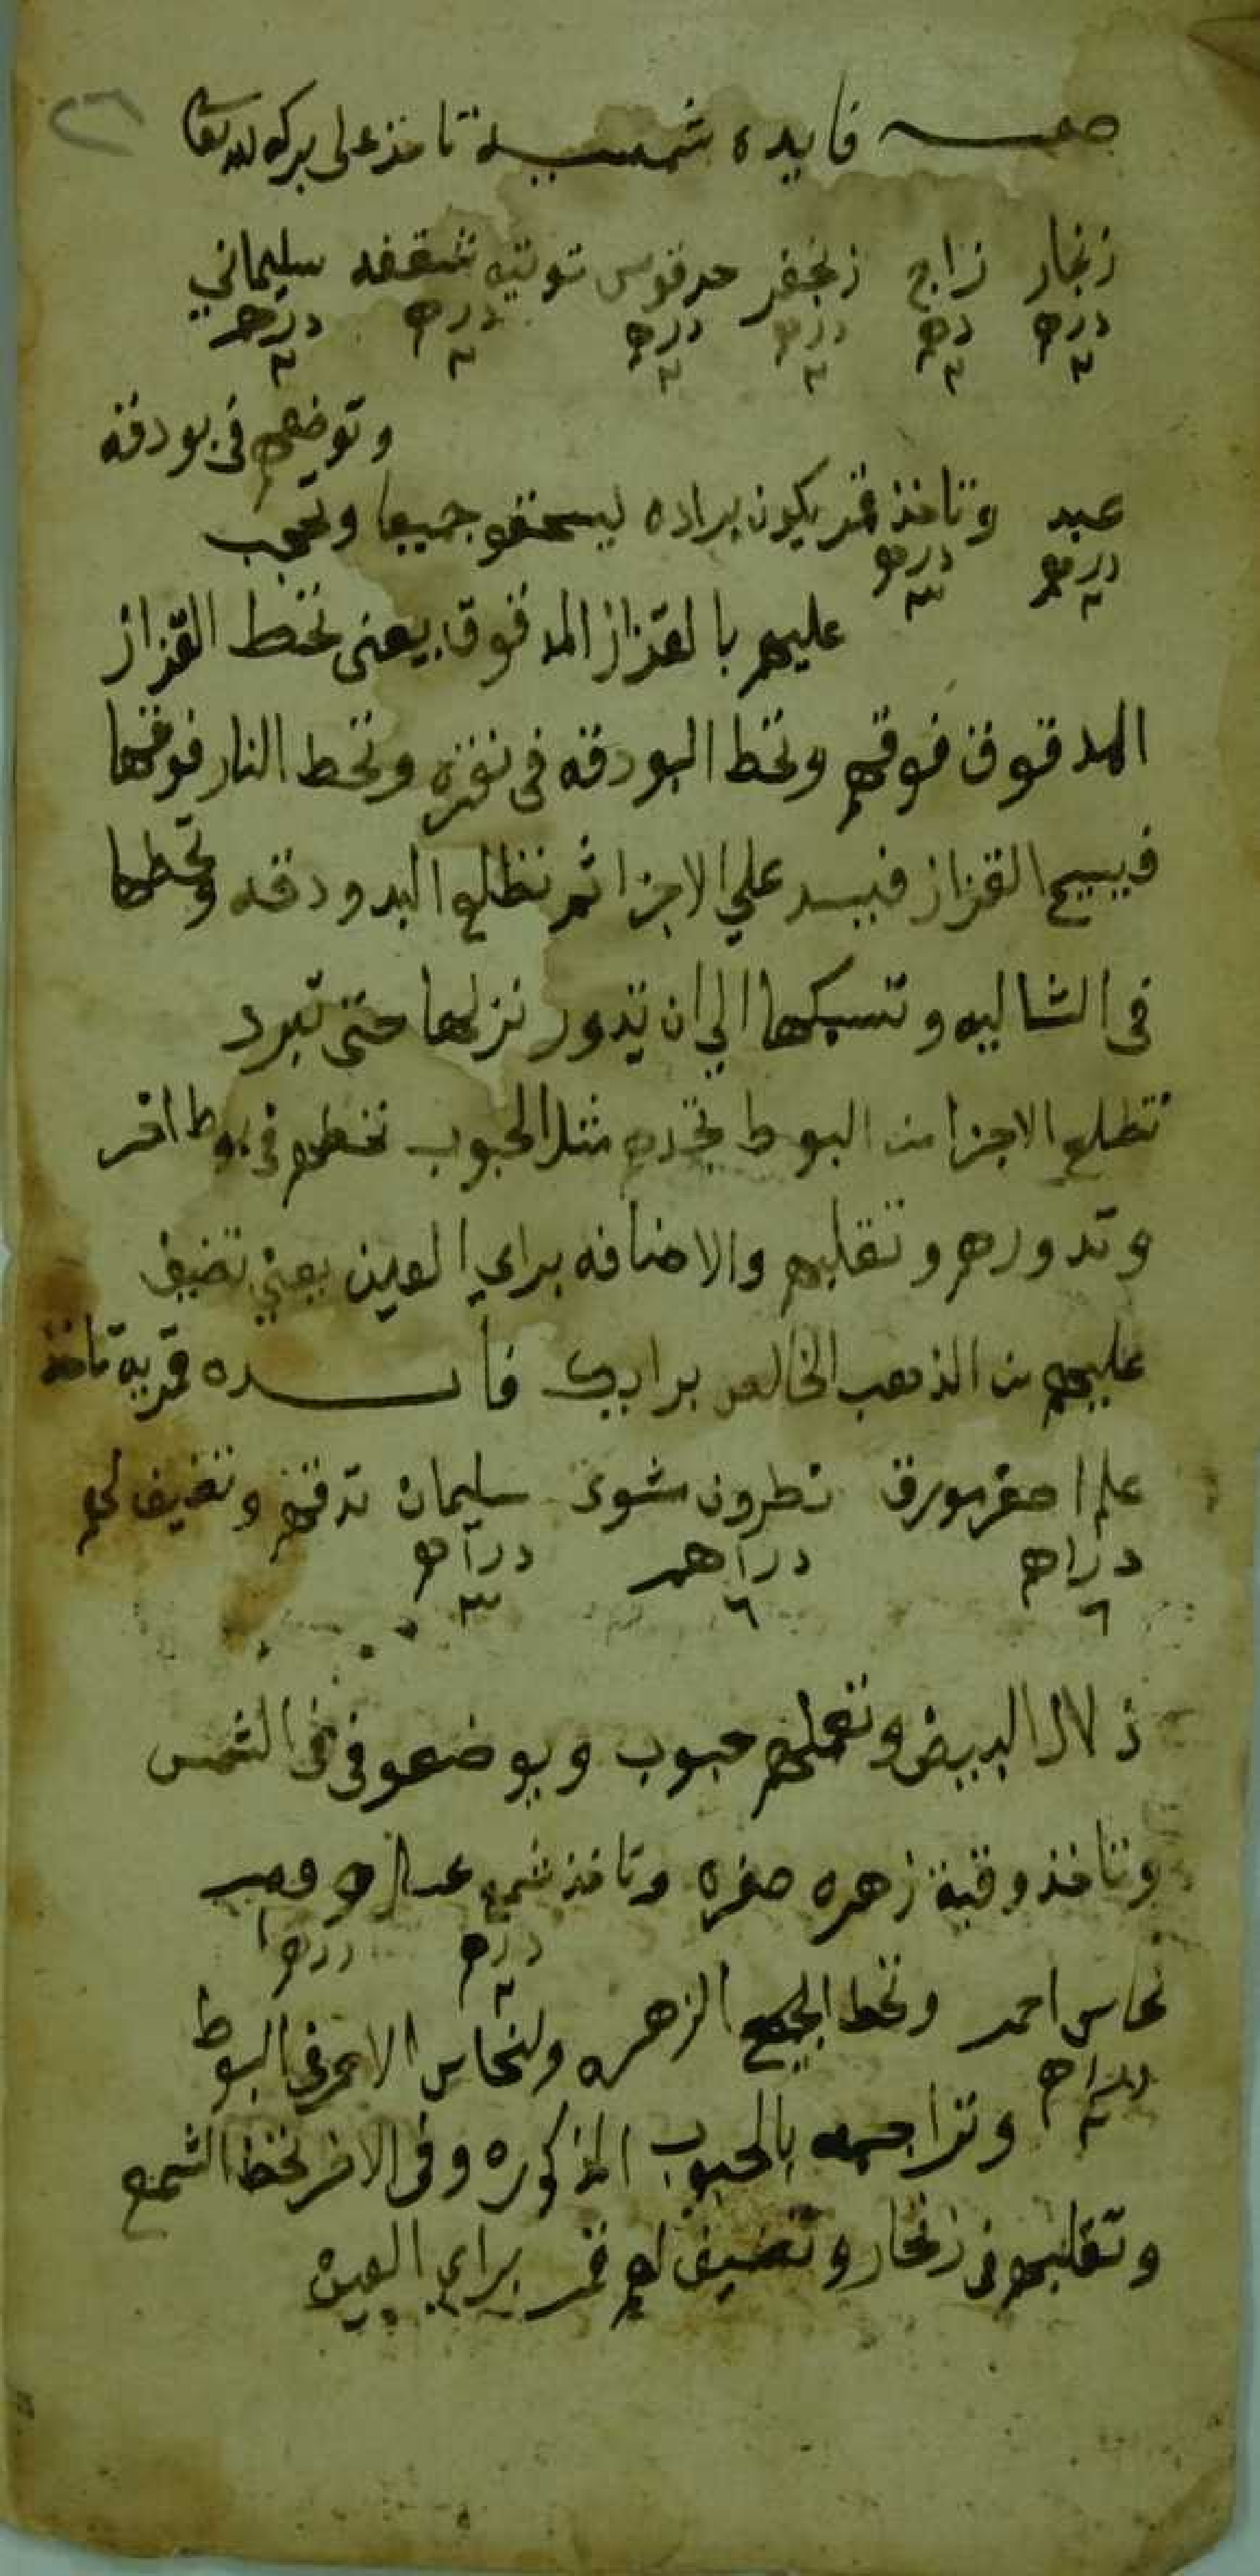 صفـــة فايده شمسية تاخذ على بركة الله تعالى
زنجار زاج زنجفر حدقوس توتيه شقفه سليماني
درهم درهم درهم درهم درهم درهم
٢ ٢ ٢ ٢ ٢ ٢
وتوضعهم في بودقه
عبد وتاخذ قمر يكون براده ليسحقو جميعا وتحجب
درهم درهم
٢ ٣
عليهم بالقزاز المدقوق يعني تحط القزاز
المدقوق فوقهم وتحط البودقه في نقره وتحط النار فوقها
فيسيح القزاز فيسد علي الاجزا ثم تطلع البدودقه وتحطها
في الشاليه وتسبكها الي ان تدور نزلها حتى تبرد
تطلع الاجزا من البوط تجدهم مثل الحبوب تحطهم في بوط اخر
وتدورهم وتقلبهم والاضافه براي العين يعني تضيف
عليهم من الذهب الخالص برايك فايـــده قمريه تاخذ
علم اصفر بورق نطرون شوي سليمان تدقهم وتضيف لهم
دراهم دراهم دراهم
٦ ٦ ٣
زلال البيض وتعملهم حبوب ويوضعو في في الشمس
وتاخذ وقية زهره صفره وتاخذ شمع عسل
درهم درهم
٢ ١
نحاس احمر وتحط الجميع الزهره ولنحاس الاحمر في البوط
دراهم
٢
وتزاجمه بالحبوب المذكوره وفي الاخر تحط الشمع
وتقلبهم في زنجار وتضيف لهم قمر براي العين